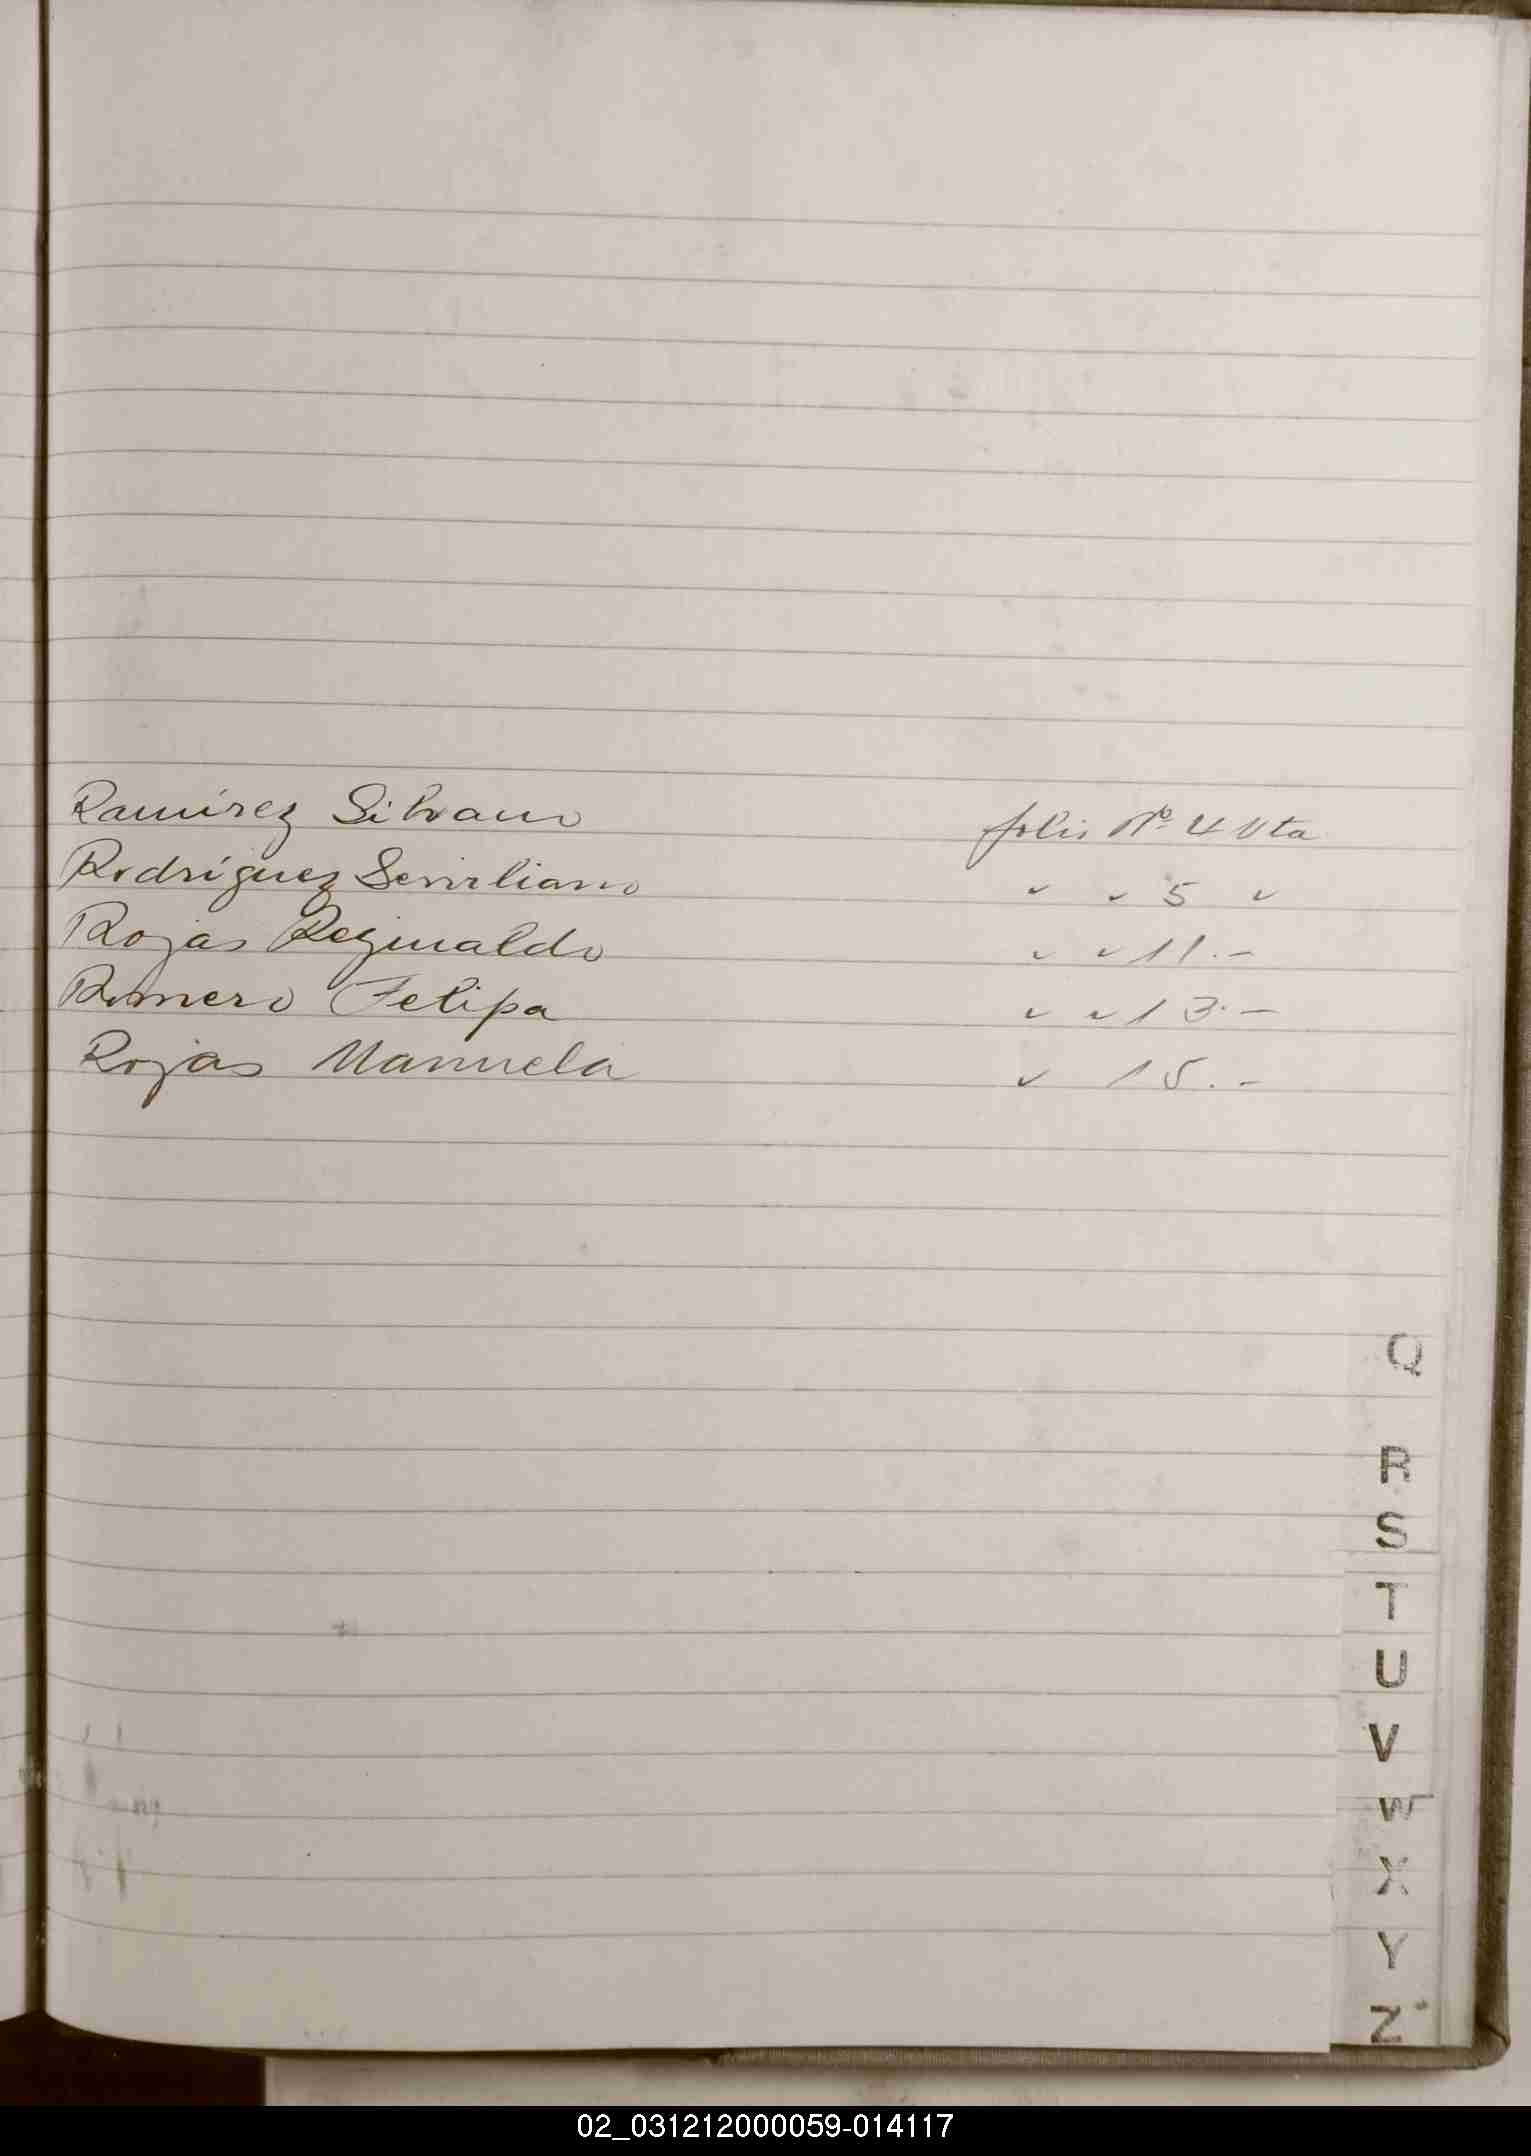 Ramírez Silvano folio Nº 4 Vta
Rodríguez Serviliano " " 5 "
Rojas Reginaldo " " 11.-
Romero Felipa " " 13.-
Rojas Manuela " 15.-
Q
R
S
T
U
V
W
X
Y
Z
02_031212000059-014117